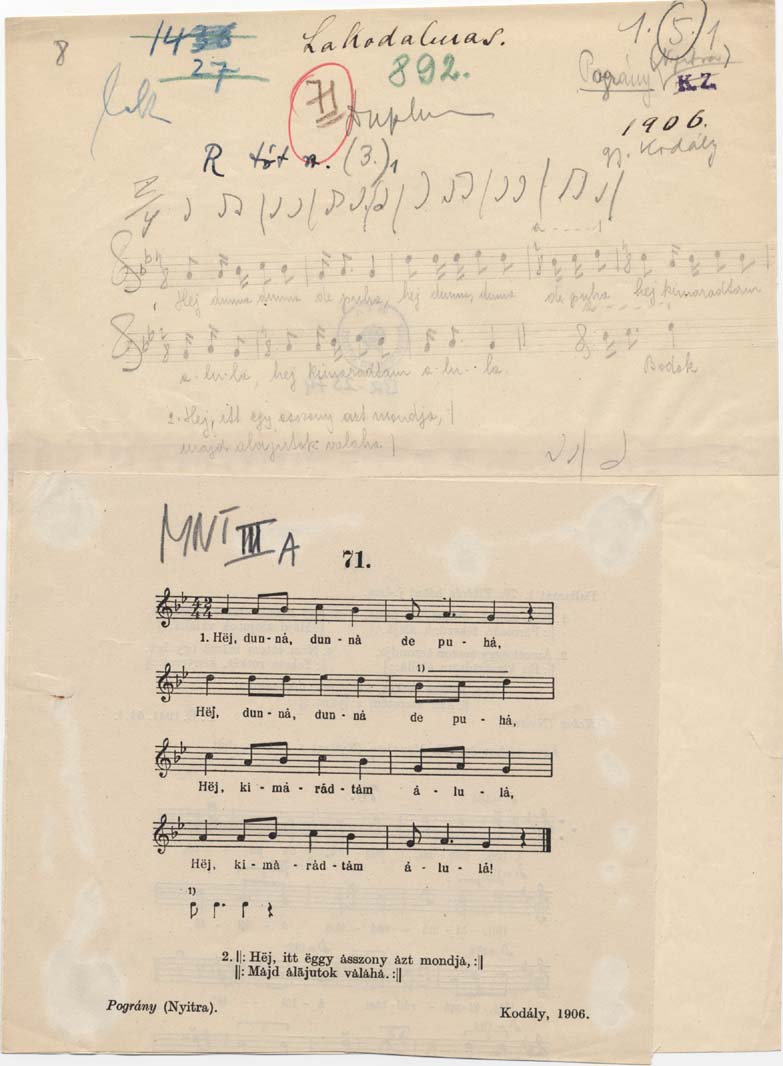 8
1436
27
Lakodalmas.
892.
1. (5.) 1
Pográny (Nyitra)
K. Z.
1906.
gy. Kodály
lak
71
Duplum
R tót n. (3.) 1
2/4
a - - - - 1
Hej dunna, dunna de puha, hej dunna, dunna de puha hej kimaradtam
a - lu - la, hej kimaradtam a - lu - la.
Bodok
2. Hej, itt egy asszony azt mondja,
majd alájutok valaha.
MNT III A
71.
1. Hëj, dun - nȧ, dun - nȧ de pu - hȧ,
1)
Hëj, dun - nȧ, dun - nȧ de pu - hȧ,
Hëj, ki - mȧ - rȧd - tȧm ȧ - lu - lȧ,
Hëj, ki - mȧ - rȧd - tȧm ȧ - lu - lȧ!
1)
2. ||: Hëj, itt ëggy ȧsszony ȧzt mondjȧ, :||
||: Mȧjd ȧlǡjutok vȧlȧhȧ. :||
Pográny (Nyitra).
Kodály, 1906.